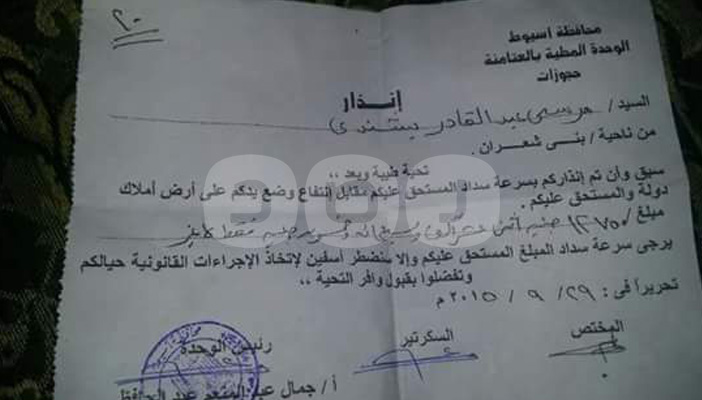 محافظة اسيوط
الوحدة المحلية بالعتامنة
حجوزات
٢٠
إنذار
السيد / مرسى عبد القادر
من ناحية / بنى شعران .
تحية طيبة وبعد ،،
سبق وأن تم إنذاركم بسرعة سداد المستحق عليكم مقابل إنتفاع وضع يدكم على أرض أملاك
دولة والمستحق عليكم .
مبلغ ١٢٧٥٠ جنيه أثنى عشر ألف وسبعمائة وخمسون جنيه فقط لاغير
يرجى سرعة سداد المبلغ المستحق عليكم وإلا سنضطر أسفين لإتخاذ الإجراءات القانونية حيالكم
وتفضلوا بقبول وافر التحية ،،
تحريراً فى : ٢٩ / ٩ / ٢٠١٥ م
المختص
السكرتير
رئيس الوحدة
أ / جمال عبد المنعم عبد الحافظ